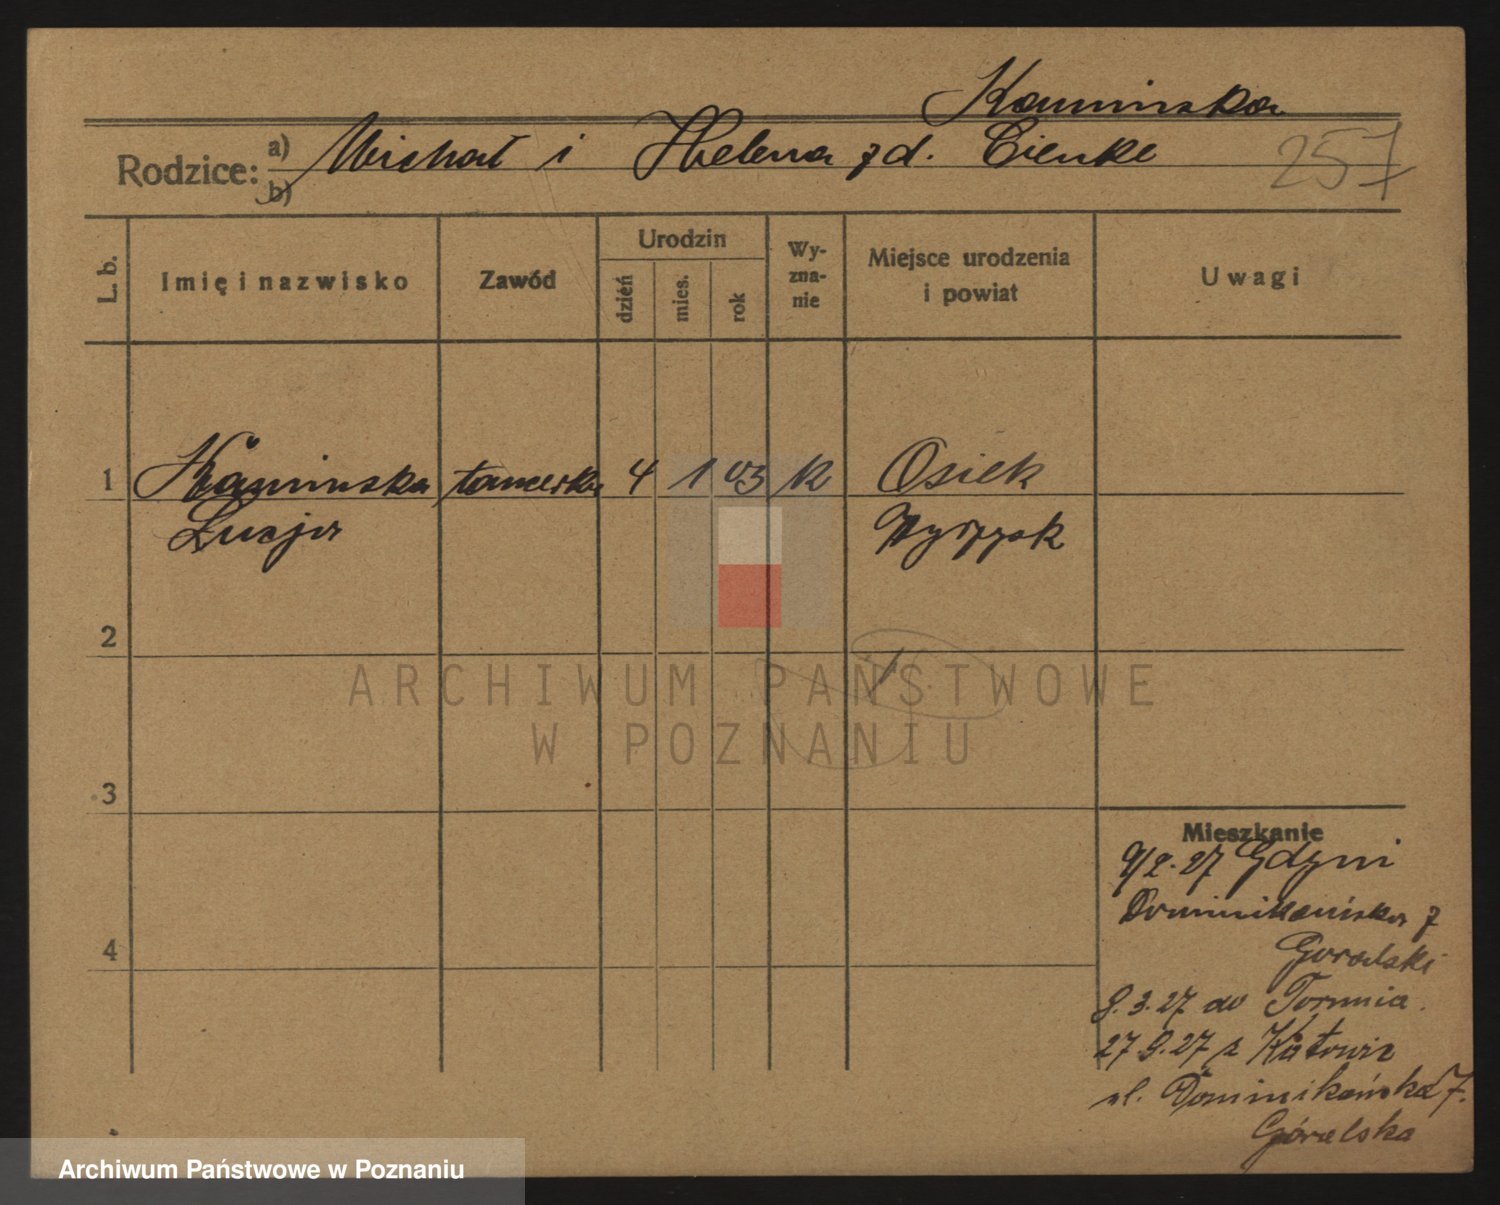 Kaminska
Rodzice: a) Michał i Helena z d. Cienke
b)
257
L. b.
Imię i nazwisko
Zawód
Urodzin
dzień
mies.
rok
Wy-
zna-
nie
Miejsce urodzenia
i powiat
Uwagi
1 Kaminska tancerka 4 1 03 K Osiek
Lucja Wyrzysk
2
3
4
Mieszkanie
9/2.27 Gdyni
Dominikańska 7
Goralski
9.3.27 do Torunia.
27.9.27 z Katowic
ul. Dominikańska 7.
Góralska
ARCHIWUM PAŃSTWOWE
W POZNANIU
Archiwum Państwowe w Poznaniu